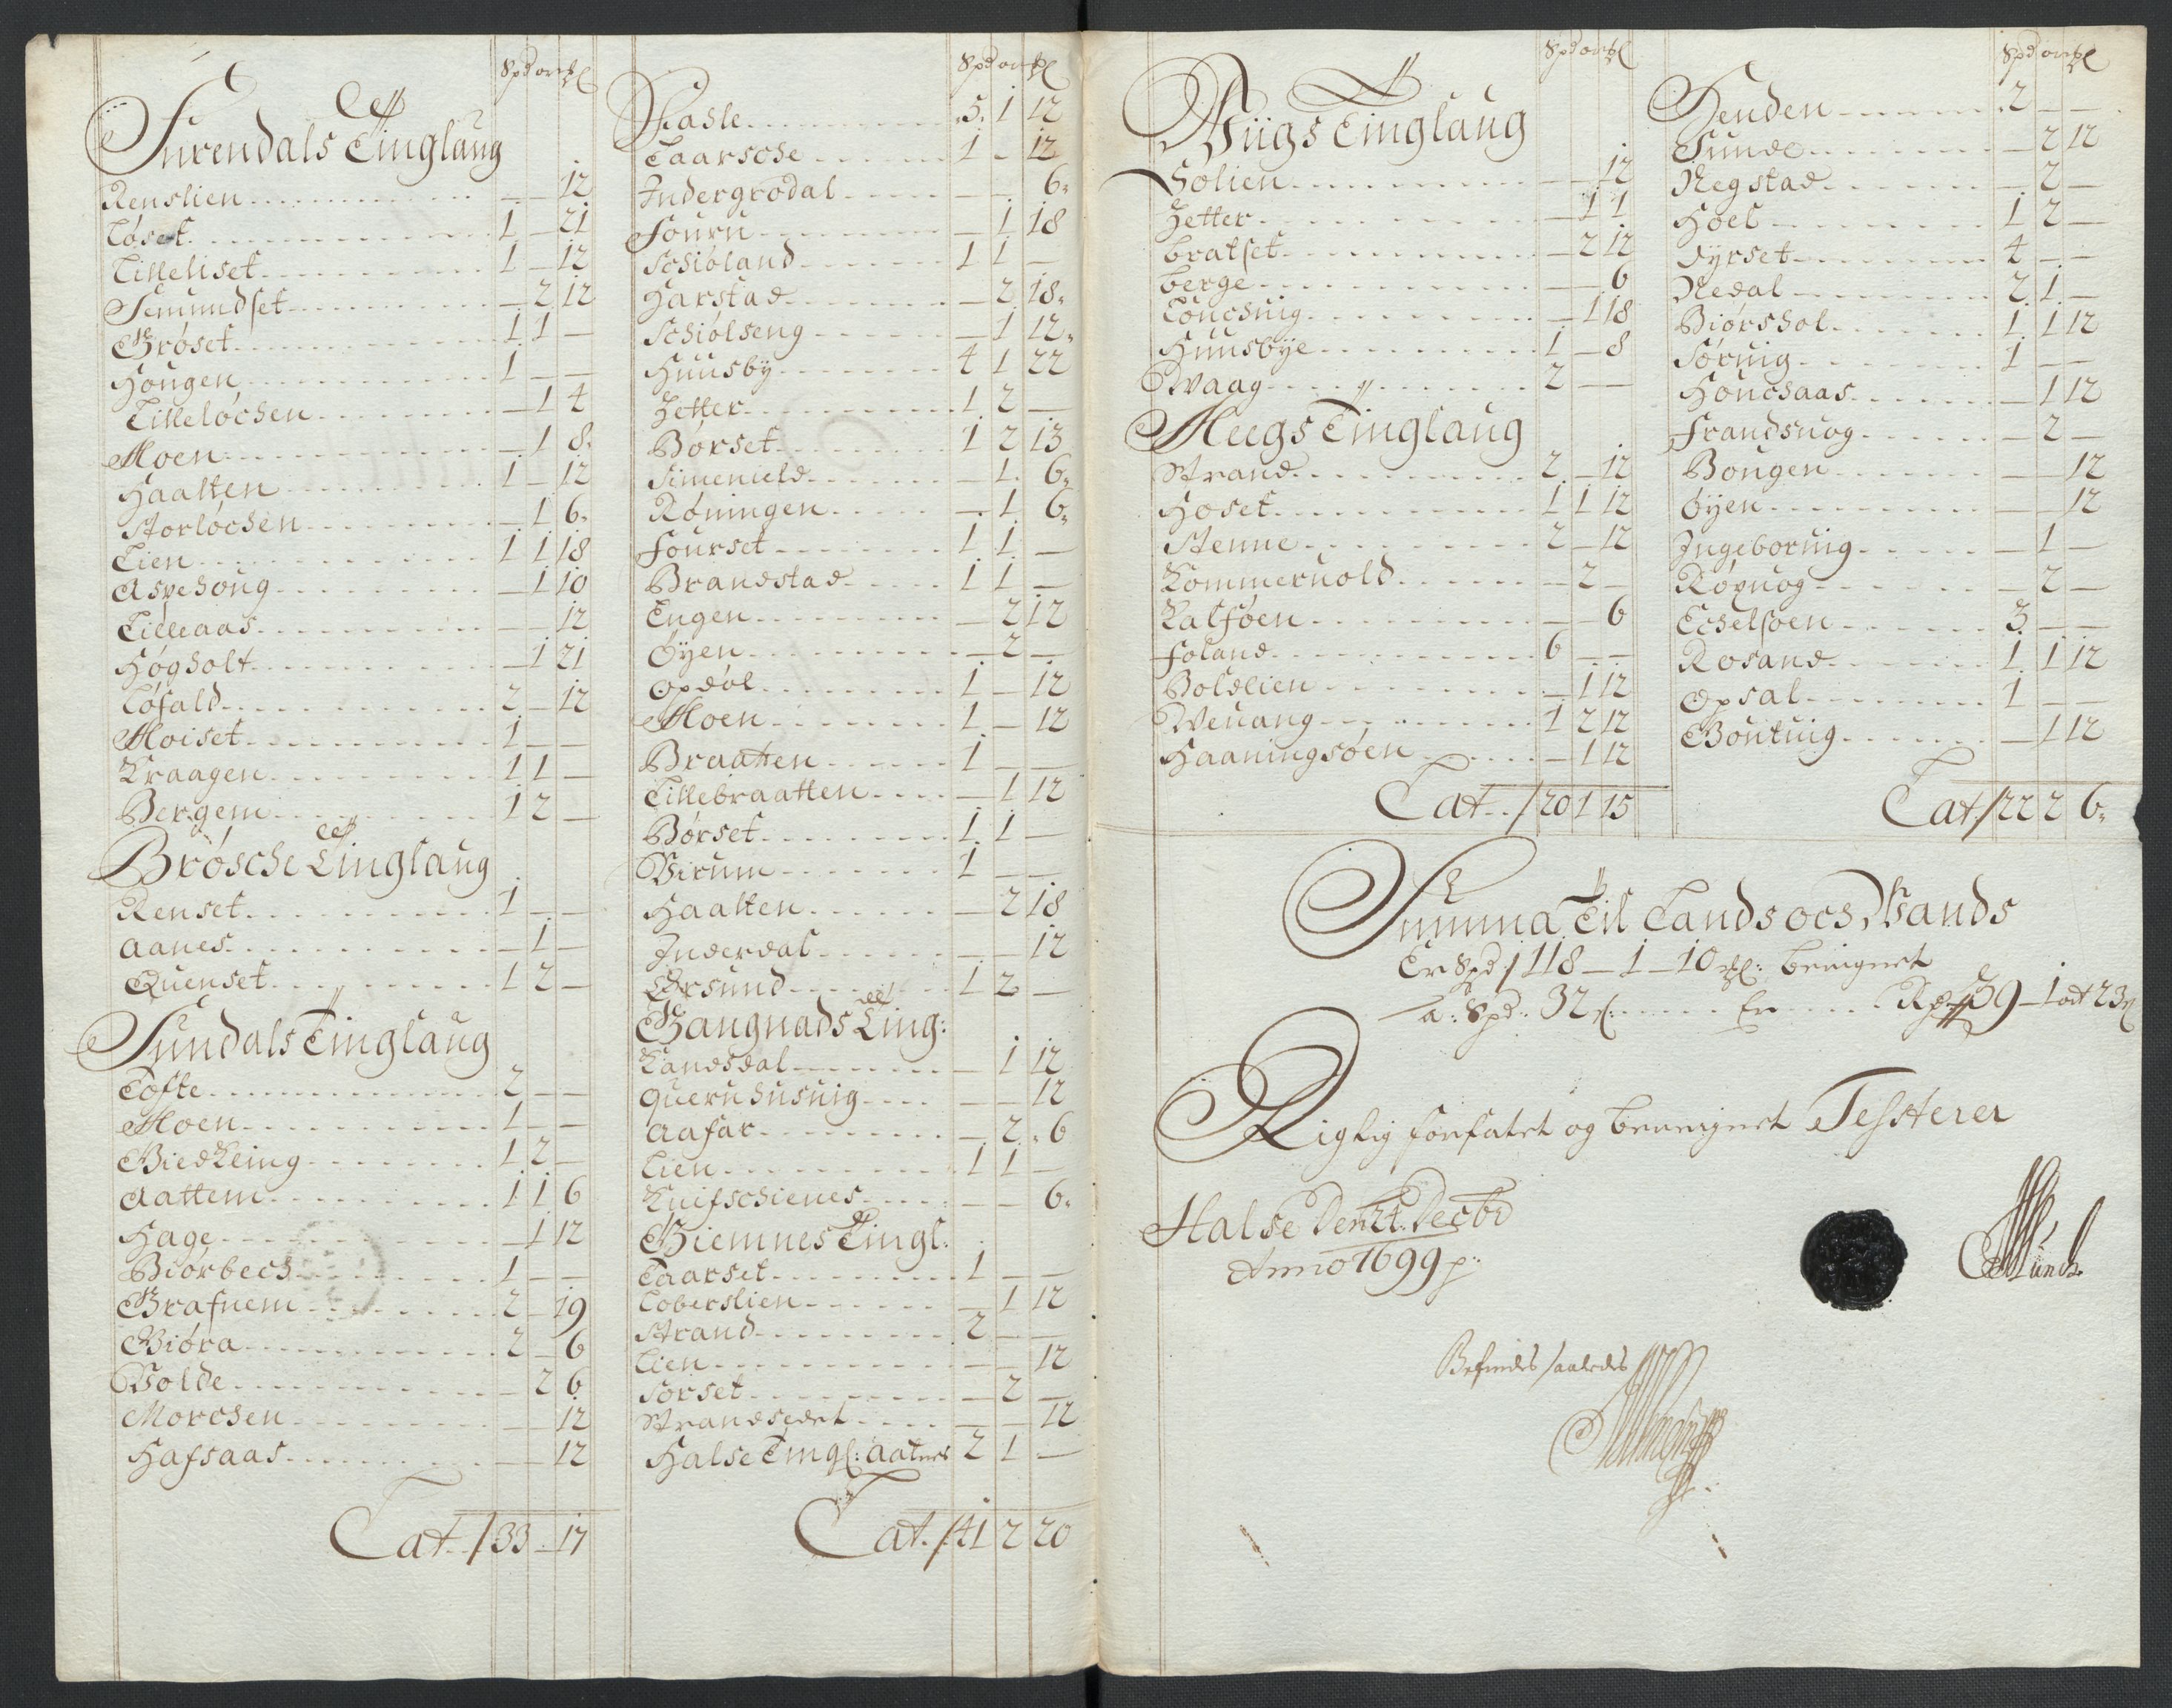 Spd ort ſl
Surendals Tinglaug
Renslien — — 12
Løset 1 — 21
Lilleliset 1 — 12
Semundset — 2 12
Grøset 1 1 —
Hougen 1 — —
Lilleløchen — 1 4
Moen — 1 8
Haalten 1 — 12
Storløchen — 1 6
Lien 1 1 18
Aspehoug — 1 10
Lilleaas — — 12
Høgholt — 1 21
Løfald 2 — 12
Moiset 1 — —
Kraagen 1 1 —
Bergem 1 2 —
Brøsche Tinglaug
Renset 1 — —
Aanes — 1 —
Quenset 1 2 —
Sundals Tinglaug
Tofte 2 — —
Moen 1 — —
Giedkeing 1 2 —
Aattem 1 1 6
Hage — 1 12
Biørbech 1 — —
Grafnem 2 — 19
Giøra 2 — 6
Volde — 2 6
Morchen — — 12
Hafsaas — — 12
Lat. / 33 — 17
Spd ort ſl
Fasle 5 1 12
Taarsohe 1 — 12
Indergrodal — — 6
Fouru — 1 18
Schiøland 1 1 —
Harstad — 2 18
Schiølseng — 1 12
Huusby 4 1 22
Setter 1 2 —
Børset 1 2 13
Simeneld — 1 6
Røningen — 1 6
Fourset 1 1 —
Brandstad 1 1 —
Engen — 2 12
Øyen — 2 —
Opdøl 1 — 12
Moen 1 — 12
Braatten 1 — —
Lillebraatten — 1 12
Børset 1 1 —
Virum 1 — —
Haalten — 2 18
Inderdal — — 12
Ørsund 1 2 —
Gangnads Ting:
Landsdal — 1 12
Quernhusuig — — 12
Aafar — 2 6
Lien 1 1 —
Knifschienes — — 6
Giemnes Tingl:
Taarset 1 — —
Toberslien — 1 12
Strand 2 — —
Lien — — 12
Sorset — 2 —
Strandsedet — — 12
Halse Tingl: Aatnes 2 1 —
Lat. / 41 2 20
Spd ort ſl
Wiigs Tinglaug
Solien — — 12
Setter — 1 1
Bratset — 2 12
Berge — — 6
Louchuig — 1 18
Huusbye 1 — 8
Waag 2 — —
Meegs Tinglaug
Strand 2 — 12
Hoset 1 1 12
Stenne 2 — 12
Kommeruold — 2 —
Kalføen — — 6
Foland 6 — —
Boldlien — 1 12
Weuang 1 2 12
Haaningsøen — 1 12
Lat. / 20 1 15
Spd ort ſl
Henden 2 — —
Sunde — 2 12
Negstad — 2 —
Hoel 1 2 —
Dyrset 4 — —
Nedal 2 1 —
Biørshol 1 1 12
Søruig 1 — —
Houchaas — 1 12
Frandsuog — 2 —
Bougen — — 12
Øyen — — 12
Ingeboruig — 1 —
Røxuog — 2 —
Echelsøen 3 — —
Rosand 1 1 12
Opsal 1 — —
Boutuig — 1 12
Lat / 22 2 6
Summa Til Lands och Vands
Er Spd / 118 — 1 — 10 ſl: beregnet
a: Spd: 32 ſ: Er Rd 39 — 1 ort 23 ſ
Rigtig forfatet og beregnet Testerer
Halse Den 24. Decbr
Anno 1699 p:
Munch
Befindes saaledes